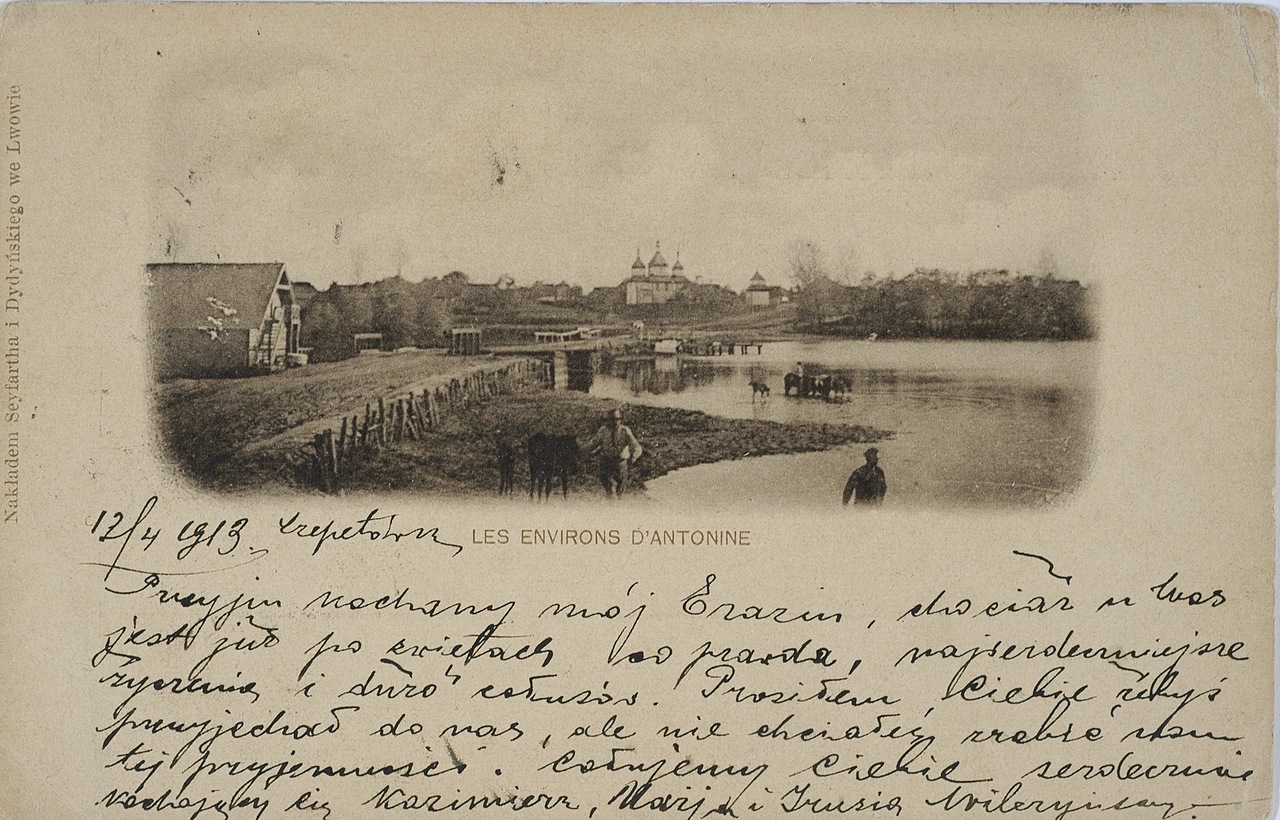 Nakładem Seyfartha i Dydyńskiego we Lwowie
12/4 1913. Szepetówka
LES ENVIRONS D'ANTONINE
Przyjm kochany mój Erazm, chociaż u Was
jest już po świętach co prawda, najserdeczniejsze
życzenia i dużo całusów. Prosiłem Ciebie żebyś
przyjechał do nas, ale nie chciałeś zrobić nam
tej przyjemności. Całujemy Ciebie serdecznie
kochający Cię Kazimierz, Marja i Irusia